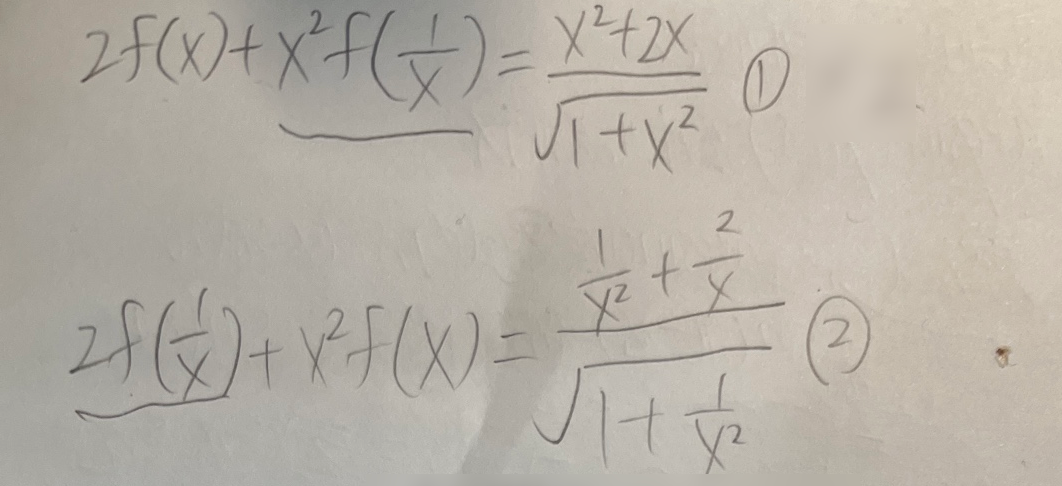 2f(x)+x²f(1/x)=(x²+2x)/√(1+x²) ①
2f(1/x)+x²f(x)=(1/x²+2/x)/√(1+1/x²) ②